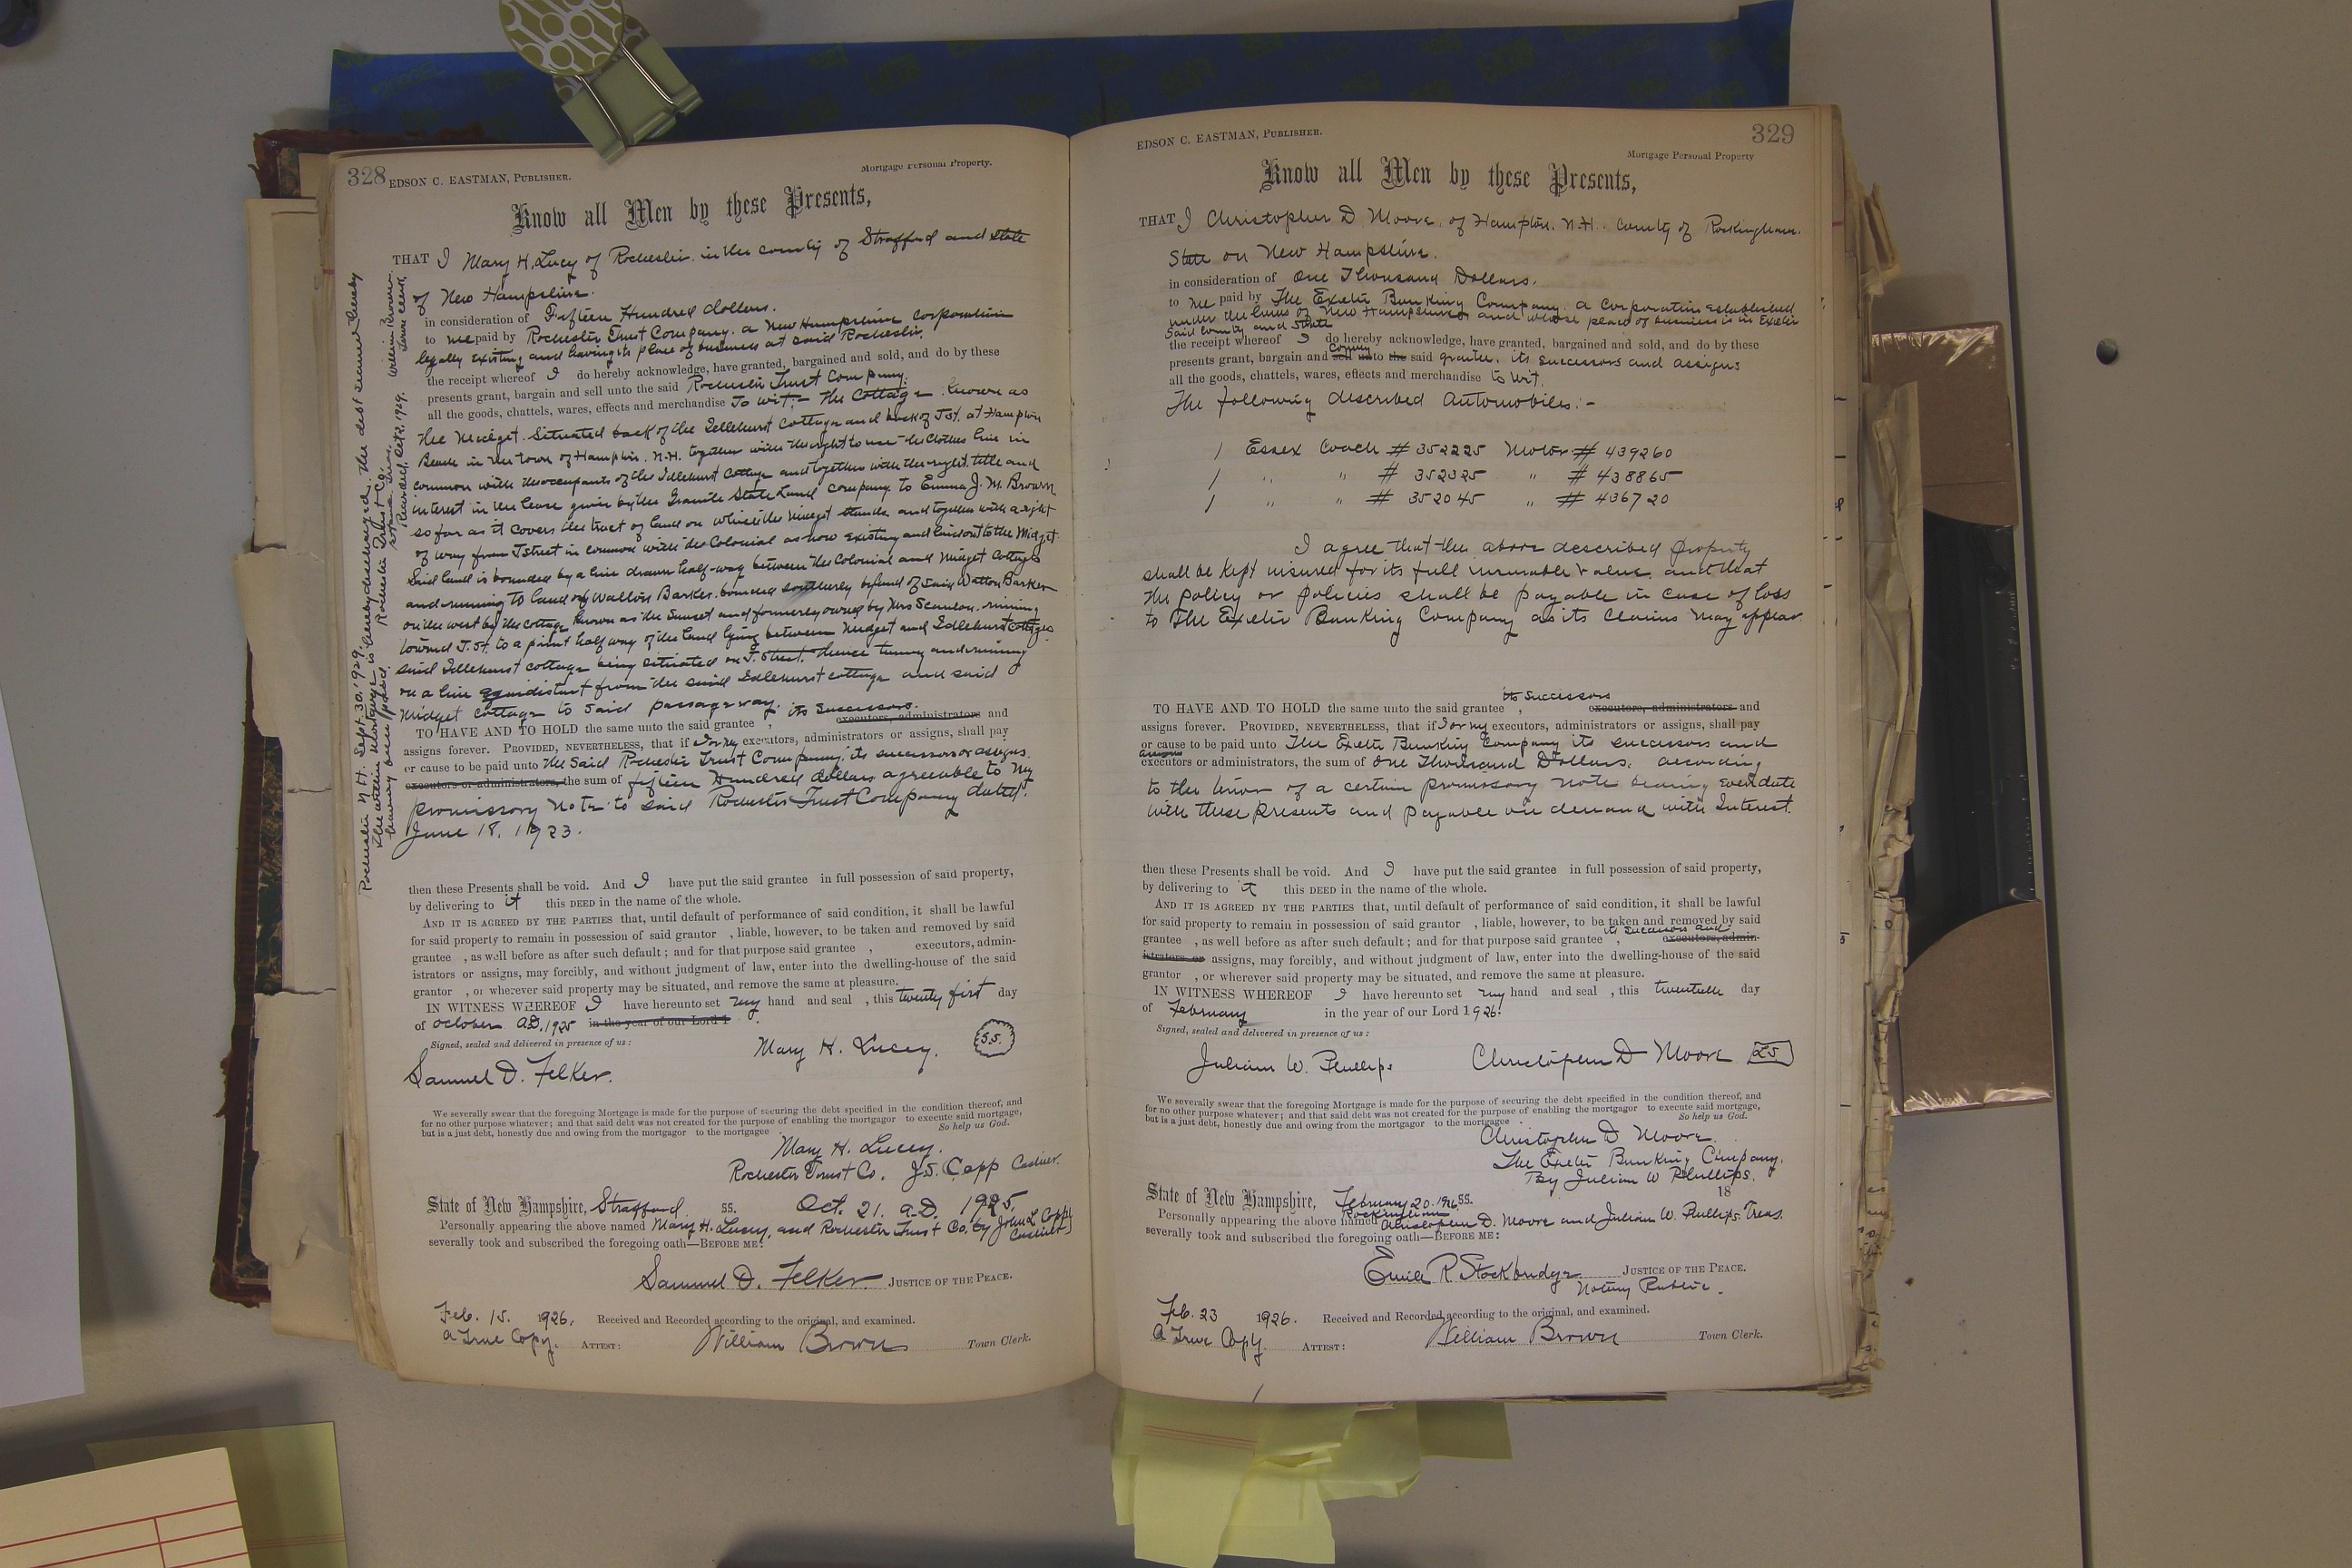 328 EDSON C. EASTMAN, PUBLISHER.
Mortgage Personal Property.
Know all Men by these Presents,
THAT I Mary H. Lucy of Rochester in the county of Strafford and state
of New Hampshire.
in consideration of Fifteen Hundred dollars.
to me paid by Rochester Trust Company. a New Hampshire corporation
legally existing and having its place of business at said Rochester.
the receipt whereof I do hereby acknowledge, have granted, bargained and sold, and do by these
presents grant, bargain and sell unto the said Rochester Trust Company.
all the goods, chattels, wares, effects and merchandise To wit:- The Cottage known as
the Midget. Situated back of the Idlehurst Cottage and back of J St. at Hampton
Beach in the town of Hampton. N.H. together with the right to use the Clothes line in
common with the occupants of the Idlehurst Cottage and together with the right, title and
interest in the lease given by the Granite State Land Company to Emma J. M. Brown
so far as it covers the tract of land on which the Midget stands and together with a right
of way from J Street in common with the Colonial as now existing and laid out to the Midget
Said land is bounded by a line drawn half-way between the Colonial and Midget Cottages
and running to land of Walton Barker. bounded southerly by land of said Walton Barker
on the west by the cottage known as the Sunset and formerly owned by Mrs Scanlon. running
toward J. St. to a point half way of the land lying between Midget and Idlehurst cottages
said Idlehurst cottage being situated on J. Street. thence turning and running
on a line equidistant from the said Idlehurst cottage and said
Midget cottage to said passageway.
TO HAVE AND TO HOLD the same unto the said grantee , its successors. executors, administrators and
assigns forever. PROVIDED, NEVERTHELESS, that if I or my executors, administrators or assigns, shall pay
or cause to be paid unto the said Rochester Trust Company, its successors or assigns.
executors or administrators, the sum of fifteen Hundred dollars agreeable to my
promissory note to said Rochester Trust Company dated.
June 18, 1923.
then these Presents shall be void. And I have put the said grantee in full possession of said property,
by delivering to it this DEED in the name of the whole.
AND IT IS AGREED BY THE PARTIES that, until default of performance of said condition, it shall be lawful
for said property to remain in possession of said grantor , liable, however, to be taken and removed by said
grantee , as well before as after such default; and for that purpose said grantee , executors, admin-
istrators or assigns, may forcibly, and without judgment of law, enter into the dwelling-house of the said
grantor , or wherever said property may be situated, and remove the same at pleasure.
IN WITNESS WHEREOF I have hereunto set my hand and seal , this twenty first day
of october A.D. 1925 in the year of our Lord 1 .
Signed, sealed and delivered in presence of us:
Mary H. Lucey. S.S.
Samuel D. Felker.
We severally swear that the foregoing Mortgage is made for the purpose of securing the debt specified in the condition thereof, and
for no other purpose whatever; and that said debt was not created for the purpose of enabling the mortgagor to execute said mortgage,
but is a just debt, honestly due and owing from the mortgagor to the mortgagee So help us God.
Mary H. Lucey.
Rochester Trust Co. J.S. Capp Cashier.
State of New Hampshire, Strafford ss. Oct. 21. A.D. 1925.
Personally appearing the above named Mary H. Lucey, and Rochester Trust Co. by John L Copp
Cashier
severally took and subscribed the foregoing oath—BEFORE ME:
Samuel D. Felker JUSTICE OF THE PEACE.
Feb. 15. 1926. Received and Recorded according to the original, and examined.
A True Copy. ATTEST: William Brown Town Clerk.
Rochester N.H. Sept. 30, 1929.
The within mortgage is hereby discharged, the debt secured hereby
having been paid. Rochester Trust Co.
Recorded, Oct 2, 1929. William Brown
Town Clerk
EDSON C. EASTMAN, PUBLISHER. 329
Mortgage Personal Property
Know all Men by these Presents,
THAT I Christopher D Moore. of Hampton. N.H. County of Rockingham.
State on New Hampshire.
in consideration of One Thousand Dollars.
to me paid by The Exeter Banking Company. a corporation established
under the laws of New Hampshire and whose place of business is in Exeter
said county and State
the receipt whereof I do hereby acknowledge, have granted, bargained and sold, and do by these
presents grant, bargain and sell Convey unto the said grantee. its successors and assigns
all the goods, chattels, wares, effects and merchandise to wit.
The following described Automobiles:-
1 Essex Coach # 352225 Motor # 439260
1 " " # 352325 " # 438865
1 " " # 352045 " # 436720
I agree that the above described property
shall be kept insured for its full insurable value. and that
the policy or policies shall be payable in case of loss
to The Exeter Banking Company as its claims may appear
its successors
TO HAVE AND TO HOLD the same unto the said grantee , executors, administrators and
assigns forever. PROVIDED, NEVERTHELESS, that if I or my executors, administrators or assigns, shall pay
or cause to be paid unto The Exeter Banking Company its successors and
assigns
executors or administrators, the sum of One Thousand Dollars. according
to the tenor of a certain promissory note bearing even date
with these presents and payable on demand with Interest.
then these Presents shall be void. And I have put the said grantee in full possession of said property,
by delivering to it this DEED in the name of the whole.
AND IT IS AGREED BY THE PARTIES that, until default of performance of said condition, it shall be lawful
for said property to remain in possession of said grantor , liable, however, to be taken and removed by said
its successors and
grantee , as well before as after such default; and for that purpose said grantee , executors, admin-
istrators or assigns, may forcibly, and without judgment of law, enter into the dwelling-house of the said
grantor , or wherever said property may be situated, and remove the same at pleasure.
IN WITNESS WHEREOF I have hereunto set my hand and seal , this twentieth day
of February in the year of our Lord 1926.
Signed, sealed and delivered in presence of us:
Julian W. Phillips Christopher D Moore L.S.
We severally swear that the foregoing Mortgage is made for the purpose of securing the debt specified in the condition thereof, and
for no other purpose whatever; and that said debt was not created for the purpose of enabling the mortgagor to execute said mortgage,
but is a just debt, honestly due and owing from the mortgagor to the mortgagee So help us God.
Christopher D Moore.
The Exeter Banking Company.
By Julian W Phillips.
State of New Hampshire, February 20. 1926 ss. 18
Rockingham
Personally appearing the above named Christopher D. Moore and Julian W. Phillips Treas.
severally took and subscribed the foregoing oath—BEFORE ME:
Emile R Stockbridge JUSTICE OF THE PEACE.
Notary Public.
Feb. 23 1926. Received and Recorded according to the original, and examined.
A True Copy. ATTEST: William Brown Town Clerk.